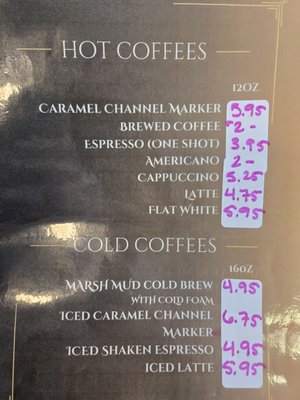 HOT COFFEES
12OZ
CARAMEL CHANNEL MARKER 5.95
BREWED COFFEE 2-
ESPRESSO (ONE SHOT) 3.95
AMERICANO 2-
CAPPUCCINO 5.25
LATTE 4.75
FLAT WHITE 5.95
COLD COFFEES
16OZ
MARSH MUD COLD BREW 4.95
WITH COLD FOAM
ICED CARAMEL CHANNEL 6.75
MARKER
ICED SHAKEN ESPRESSO 4.95
ICED LATTE 5.95